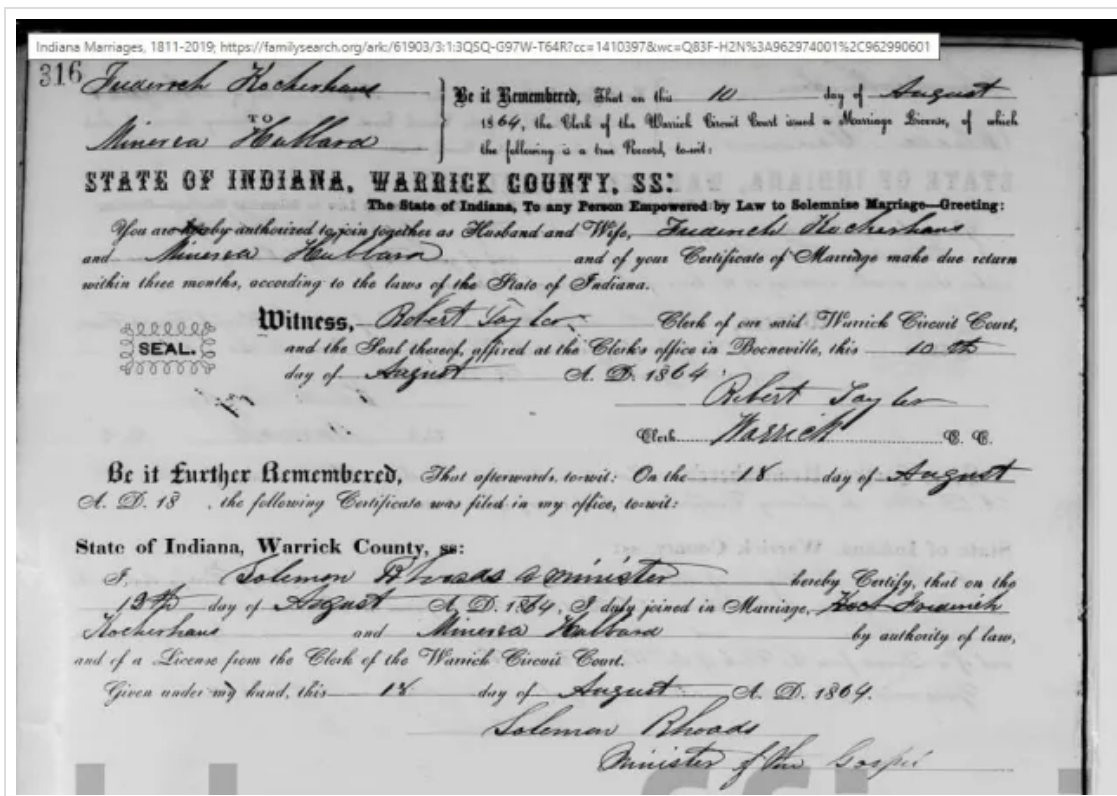 Indiana Marriages, 1811-2019; https://familysearch.org/ark:/61903/3:1:3QSQ-G97W-T64R?cc=1410397&wc=Q83F-H2N%3A962974001%2C962990601
316 Frederich Kocherhans
TO
Minerva Hubbard
Be it Remembered, That on this 10 day of August
1864, the Clerk of the Warrick Circuit Court issued a Marriage License, of which
the following is a true Record, to-wit:
STATE OF INDIANA, WARRICK COUNTY, SS:
The State of Indiana, To any Person Empowered by Law to Solemnise Marriage—Greeting:
You are hereby authorized to join together as Husband and Wife, Frederich Kocherhans
and Minerva Hubbard and of your Certificate of Marriage make due return
within three months, according to the laws of the State of Indiana.
Witness, Robert Taylor Clerk of our said Warrick Circuit Court,
SEAL.
and the Seal thereof, affixed at the Clerk's office in Boonville, this 10th
day of August A. D. 1864
Robert Taylor
Clerk Warrick C. C.
Be it Further Remembered, That afterwards, to-wit: On the 18 day of August
A. D. 18 , the following Certificate was filed in my office, to-wit:
State of Indiana, Warrick County, ss:
I, Solomon Rhoads a minister hereby Certify, that on the
day of August A. D. 1864, I duly joined in Marriage, Frederich
Kocherhans and Minerva Hubbard by authority of law,
and of a License from the Clerk of the Warrick Circuit Court.
Given under my hand, this 18 day of August A. D. 1864.
Solomon Rhoads
Minister of the Gospel